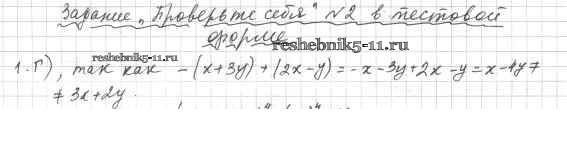 Задание „Проверьте себя" №2 в тестовой
форме
reshebnik5-11.ru
reshebnik5-11.ru
1. Г), так как - (x+3y) + (2x-y) = -x-3y+2x-y = x-4y ≠
≠ 3x+2y.